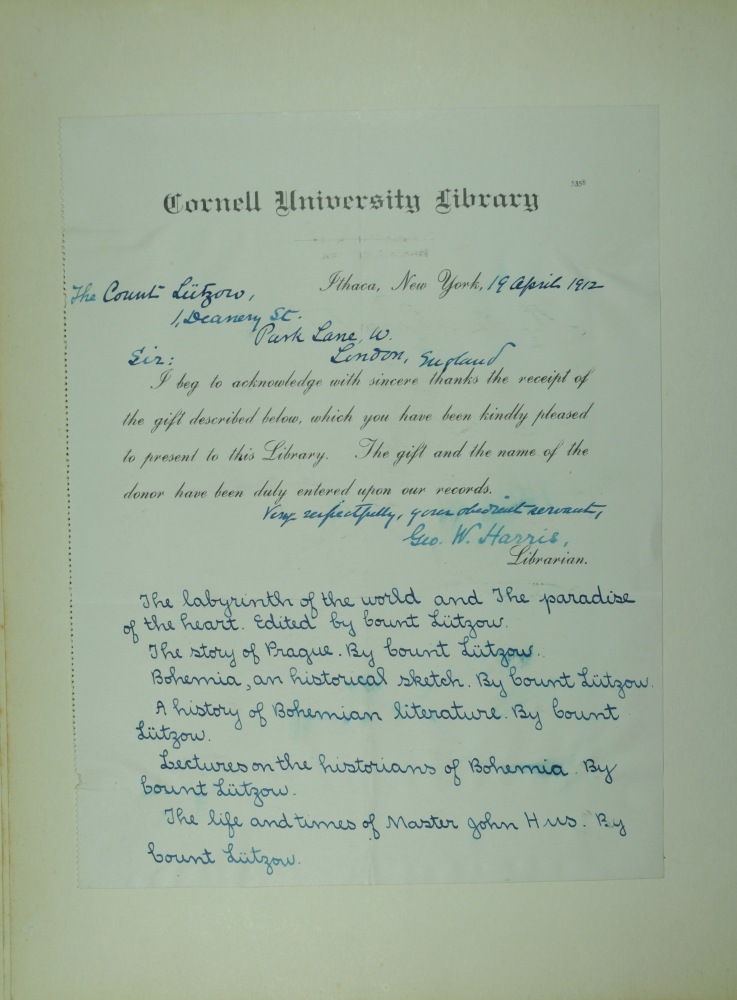 3358
Cornell University Library
Ithaca, New York, 19 April 1912
The Count Lützow,
1, Deanery St.
Park Lane, W.
London, England
Sir:
I beg to acknowledge with sincere thanks the receipt of
the gift described below, which you have been kindly pleased
to present to this Library. The gift and the name of the
donor have been duly entered upon our records.
Very respectfully, your obedient servant,
Geo. W. Harris,
Librarian.
The labyrinth of the world and The paradise
of the heart. Edited by Count Lützow.
The story of Prague. By Count Lützow.
Bohemia, an historical sketch. By Count Lützow.
A history of Bohemian literature. By Count
Lützow.
Lectures on the historians of Bohemia. By
Count Lützow.
The life and times of Master John Hus. By
Count Lützow.